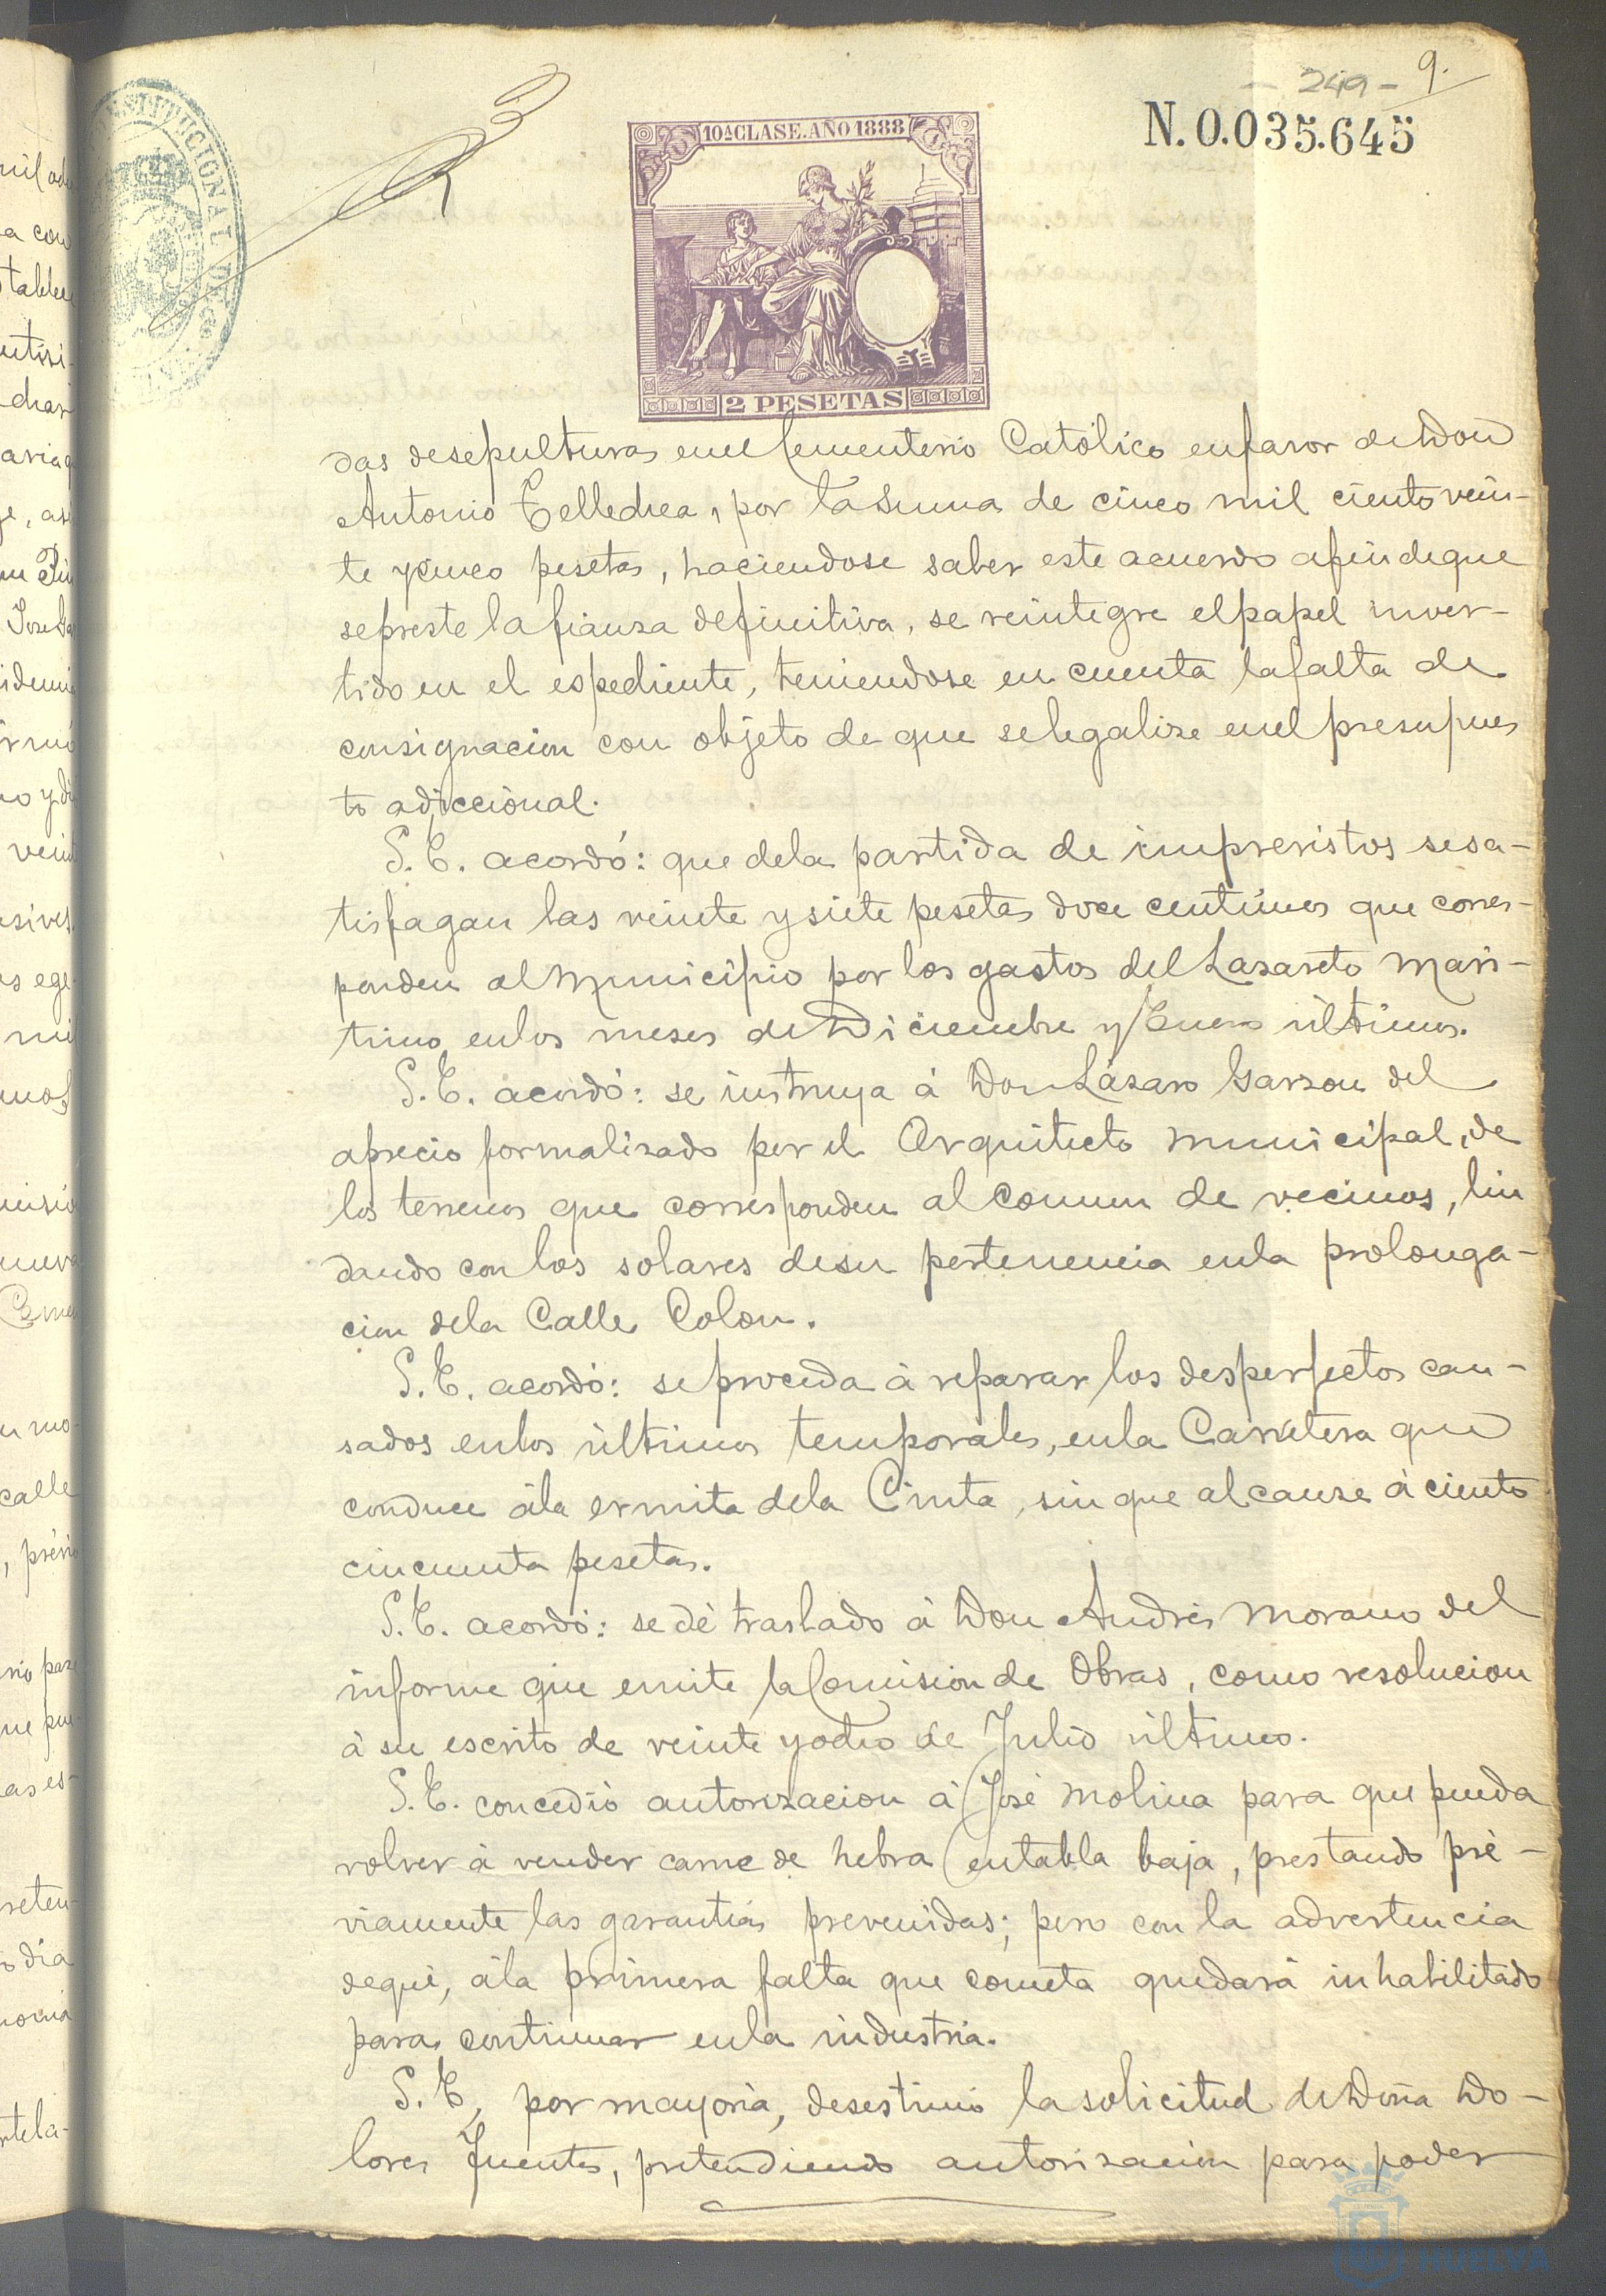 - 249 - 9.
N. 0.035.645
10ª CLASE. AÑO 1888
2 PESETAS
CONSTITUCIONAL DE
das de sepulturas en el Cementerio Católico en favor de Don
Antonio Tellechea, por la suma de cinco mil ciento vein-
te y cinco pesetas, haciendose saber este acuerdo a fin de que
se preste la fianza definitiva, se reintegre el papel inver-
tido en el espediente, teniendose en cuenta la falta de
consignacion con objeto de que se legalize en el presupues
to adiccional.
S. E. acordó: que de la partida de imprevistos se sa-
tisfagan las veinte y siete pesetas doce centimos que corres-
ponden al Municipio por los gastos del Lazareto Mari-
timo en los meses de Diciembre y Enero últimos.
S. E. acordó: se instruya á Don Lázaro Garzon del
aprecio formalizado por el Arquitecto Municipal, de
los terrenos que corresponden al comun de vecinos, lin
dando con los solares de su pertenencia en la prolonga-
cion de la Calle Colon.
S. E. acordó: se proceda á reparar los desperfectos cau-
sados en los últimos temporales, en la Carretera que
conduce á la ermita de la Cinta, sin que alcanze á ciento
cincuenta pesetas.
S. E. acordó: se dé traslado á Don Andrés Morano del
informe que emite la Comision de Obras, como resolucion
á su escrito de veinte y ocho de Julio último.
S. E. concedió autorizacion á José Molina para que pueda
volver á vender carne de hebra en tabla baja, prestando pré-
viamente las garantias prevenidas; pero con la advertencia
de que, á la primera falta que cometa quedará inhabilitado
para continuar en la industria.
S. E, por mayoria, desestimó la solicitud de Doña Do-
lores Fuentes, pretendiendo autorizacion para poder
HUELVA